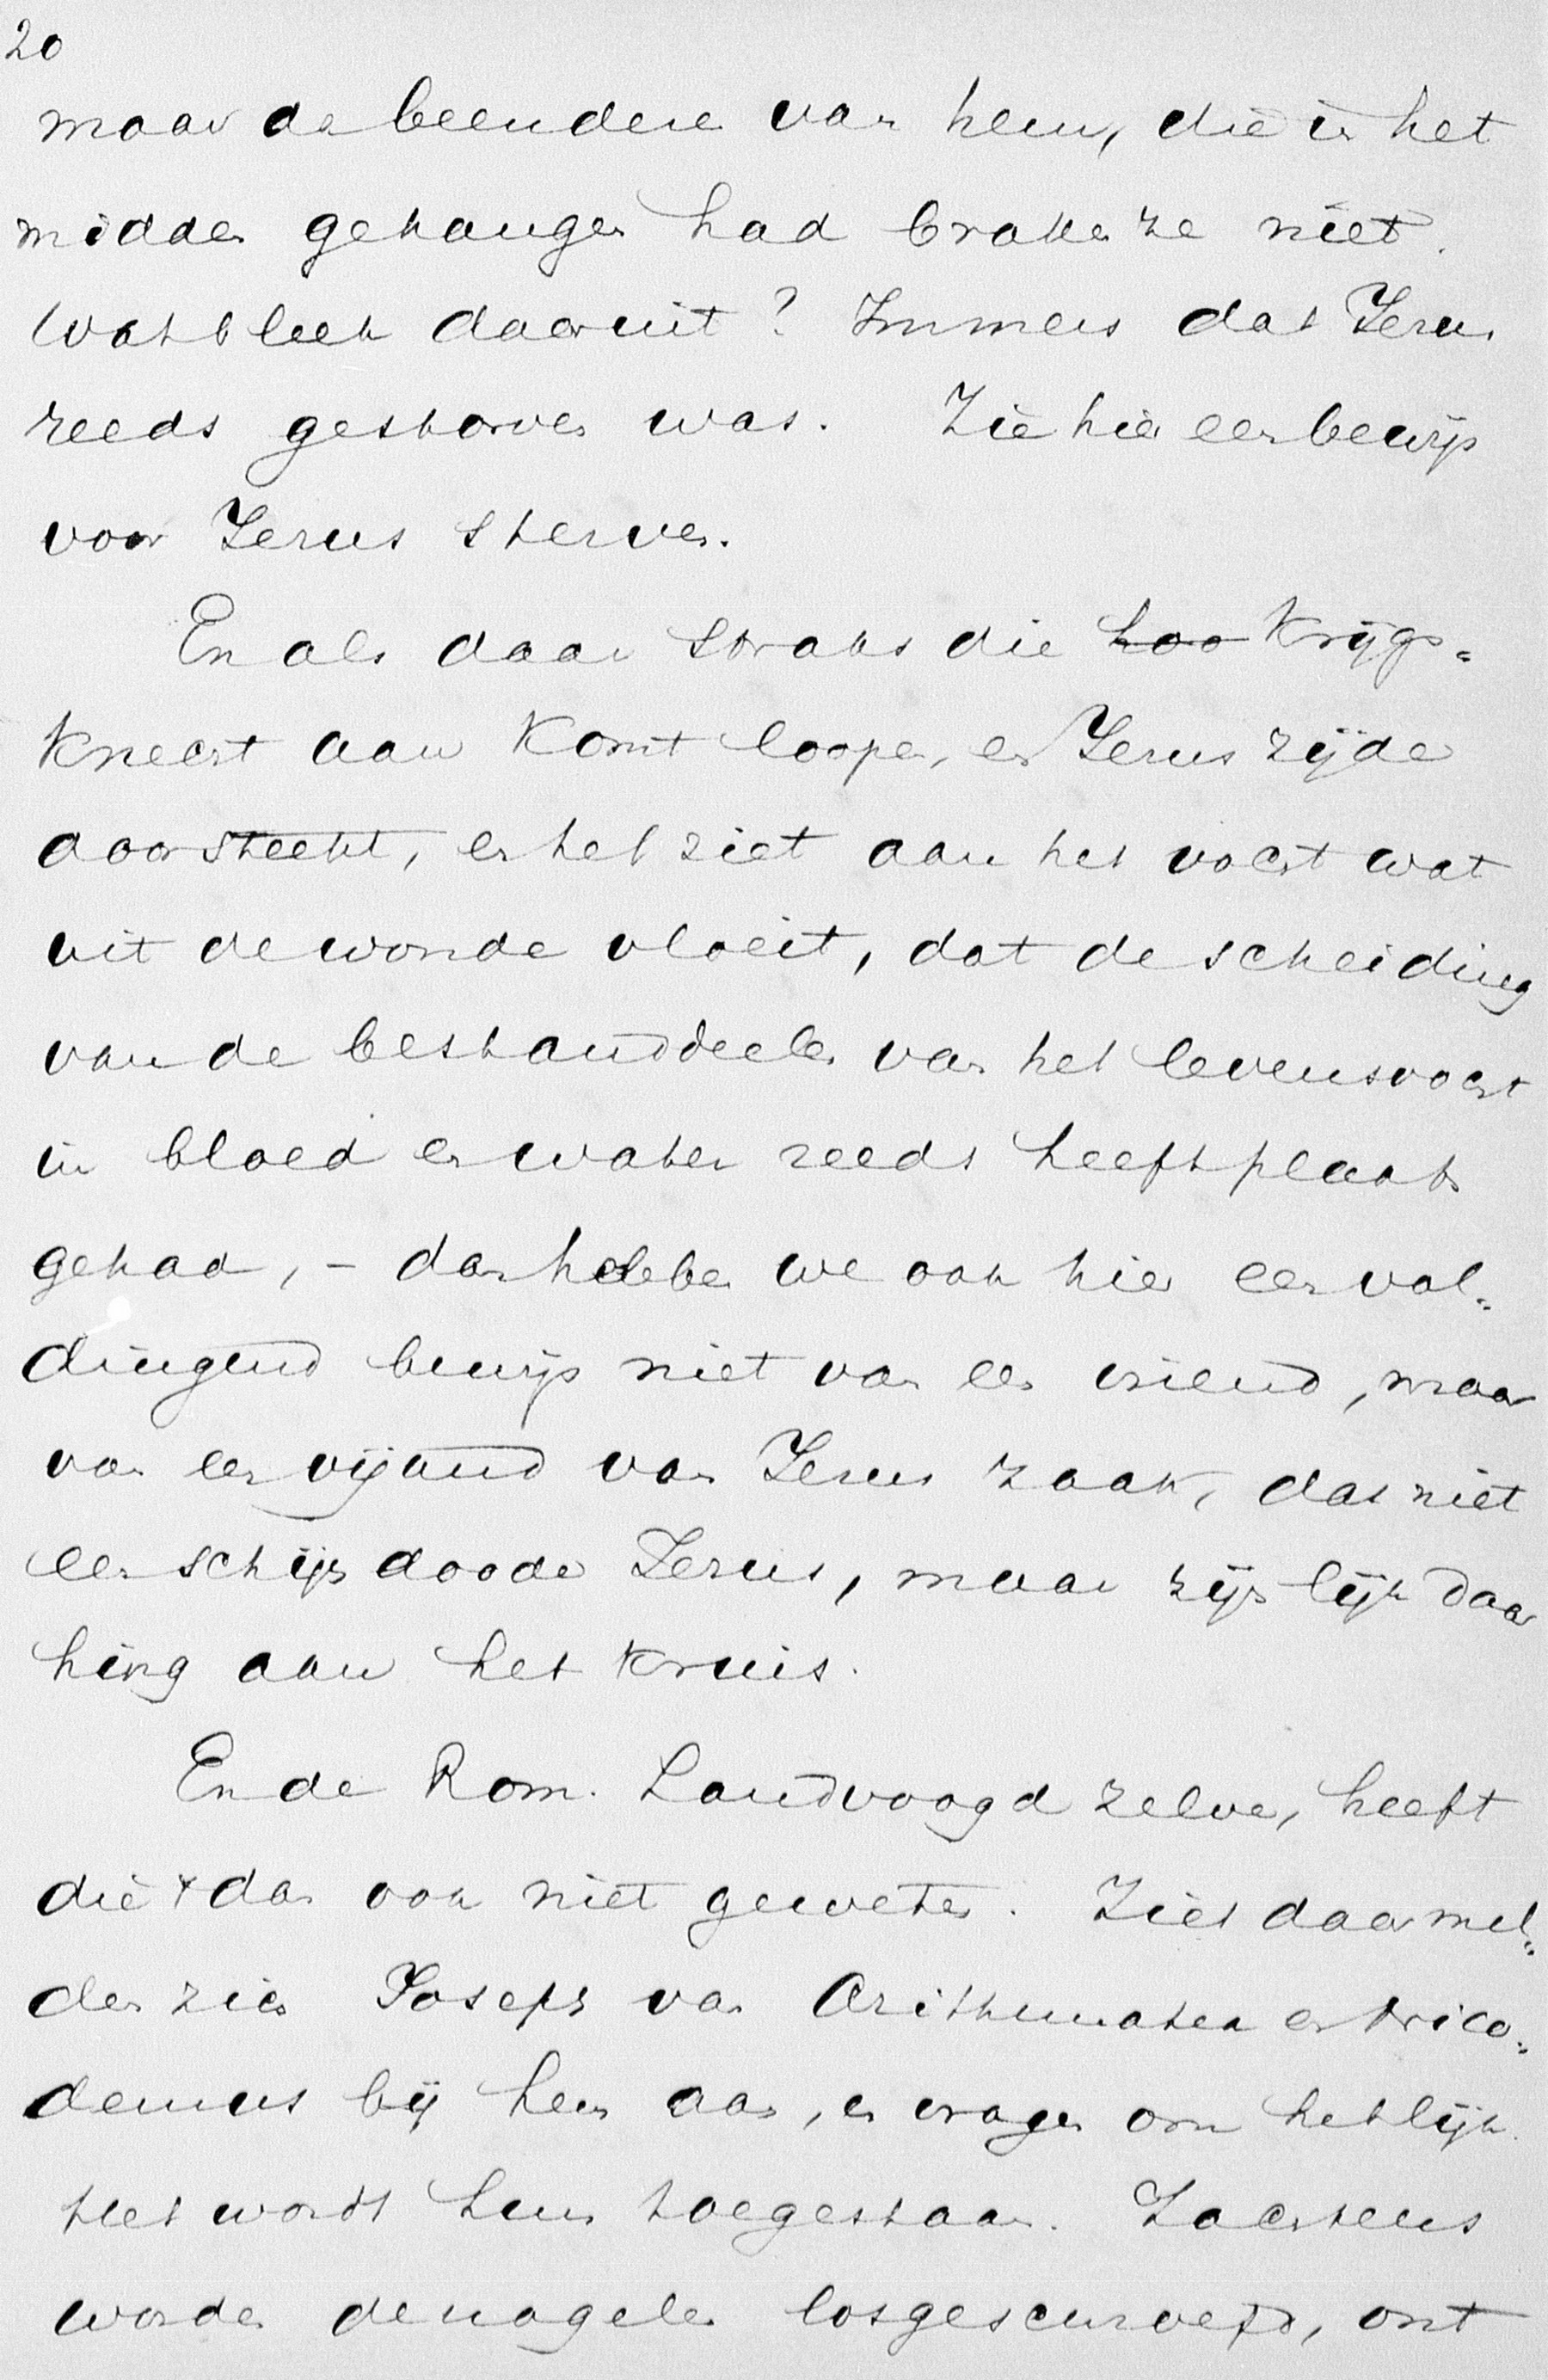 20
maar de beenderen van hem, die in het
midden gehangen had braken ze niet.
Wat bleek daaruit? Immers dat Jezus
reeds gestorven was. Zie hier een bewijs
voor Jezus sterven.
En als daar straks die hoo krijgs=
knecht aan komt loopen, en Jezus zijde
doorsteekt, en het ziet aan het vocht wat
uit de wonde vloeit, dat de scheiding
van de bestanddeelen van het levensvocht
in bloed en water reeds heeft plaats
gehad, – dan hebben we ook hier een vol=
dingend bewijs niet van een vriend, maar
van een vijand van Jezus zaak, dat niet
een schijndoode Jezus, maar zijn lijk daar
hing aan het kruis.
En de Rom. Landvoogd zelve, heeft
die + dan ook niet geweten. Ziet daar mel=
den zich Joseph van Arithmatea en Nico=
demus bij hem aan, en vragen om het lijk.
Het wordt hun toegestaan. Zachtens
worden de nagelen losgeschroefd, ont